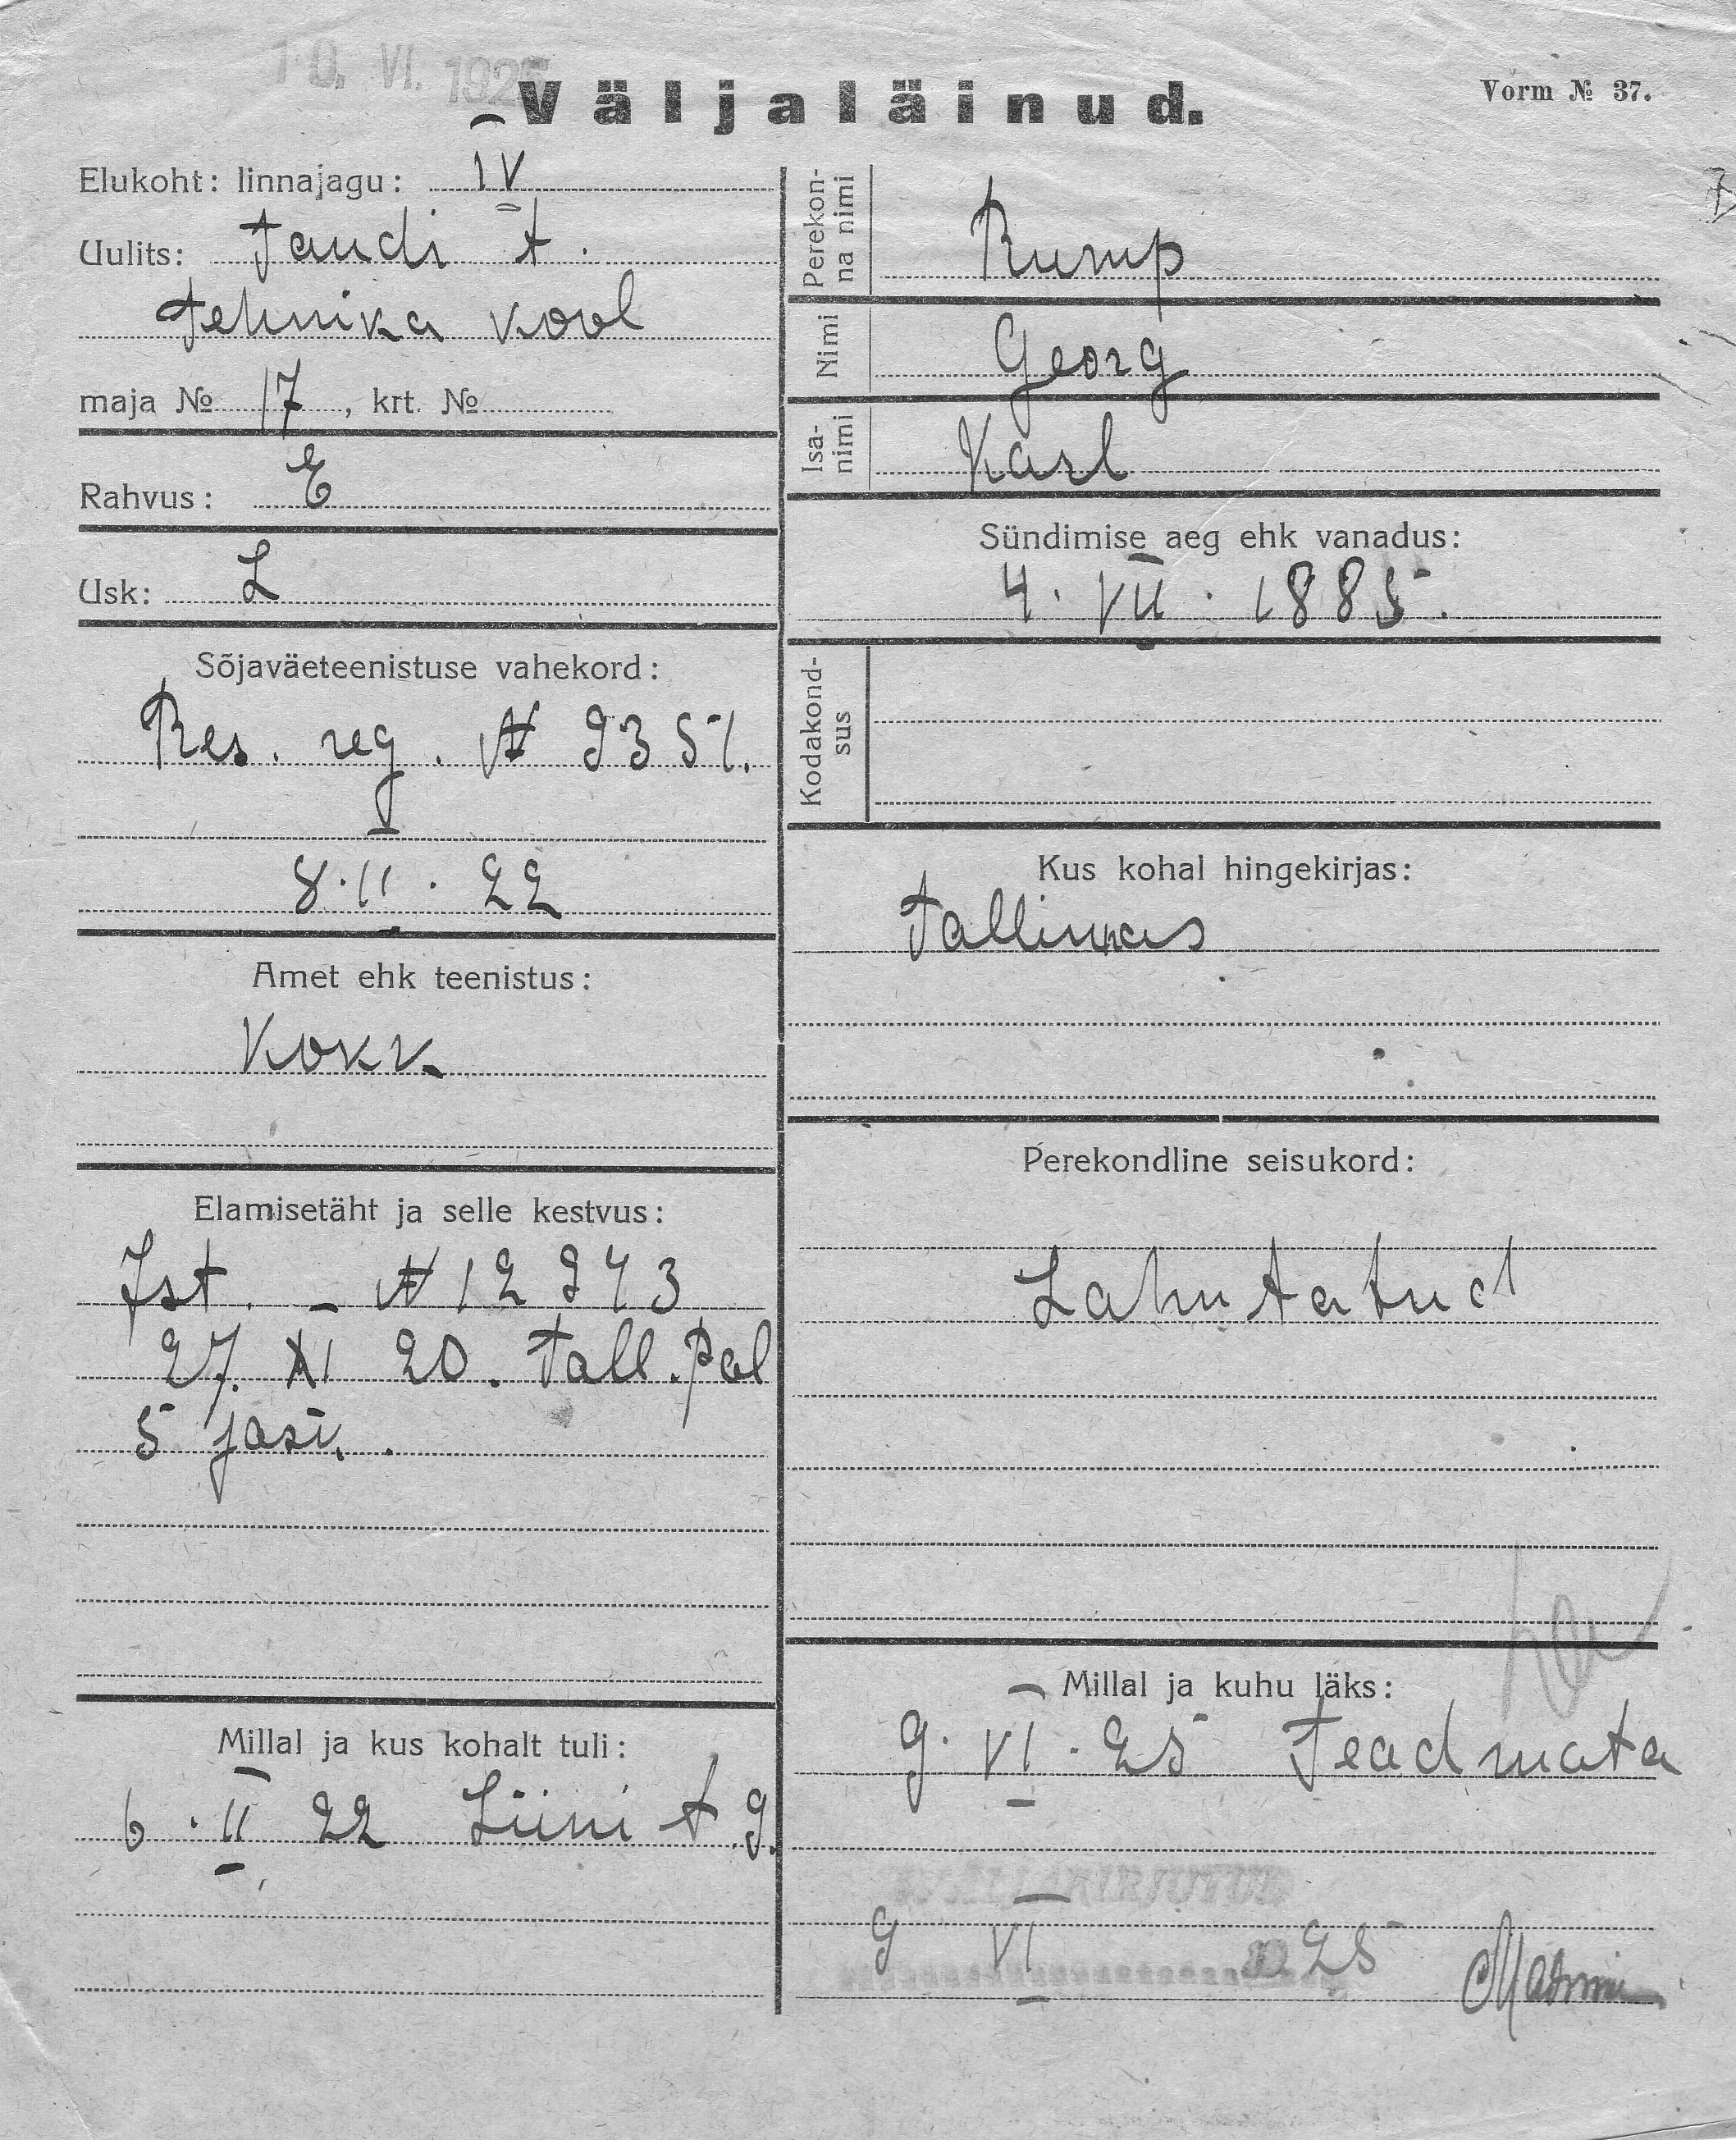 10. VI. 1925
Väljaläinud.
Vorm № 37.
Elukoht: linnajagu: IV
Uulits: Jaudi t.
Tehnika kool
maja № 17, krt. №
Rahvus: E
Usk: L
Sõjaväeteenistuse vahekord:
Res. reg. N 9351.
8.II.22
Amet ehk teenistus:
Kokk.
Elamisetäht ja selle kestvus:
Ist. - N 12943
27. XI 20. Tall. Pol
5 jasi.
Millal ja kus kohalt tuli:
6.II 22 Liini t. 9.
Perekon-
na nimi
Rump
Nimi
Georg
Isa-
nimi
Karl
Sündimise aeg ehk vanadus:
4. VII. 1885.
Kodakond-
sus
Kus kohal hingekirjas:
Tallinnas
Perekondline seisukord:
Lahutatud
Millal ja kuhu läks:
9. VI. 25 Teadmata
VÄLJAKIRJUTUD
9 VI 25